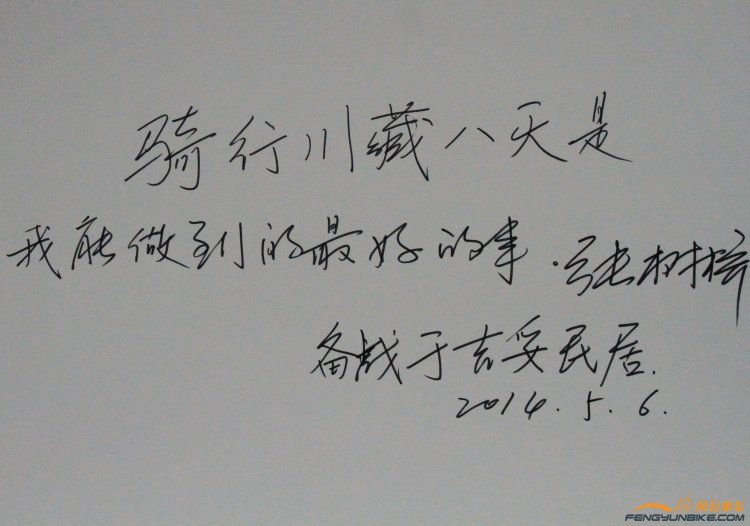 骑行川藏八天是
我能做到的最好的事.张树
备战于吉妥民居.
2014.5.6.
FENGYUNBIKE.COM